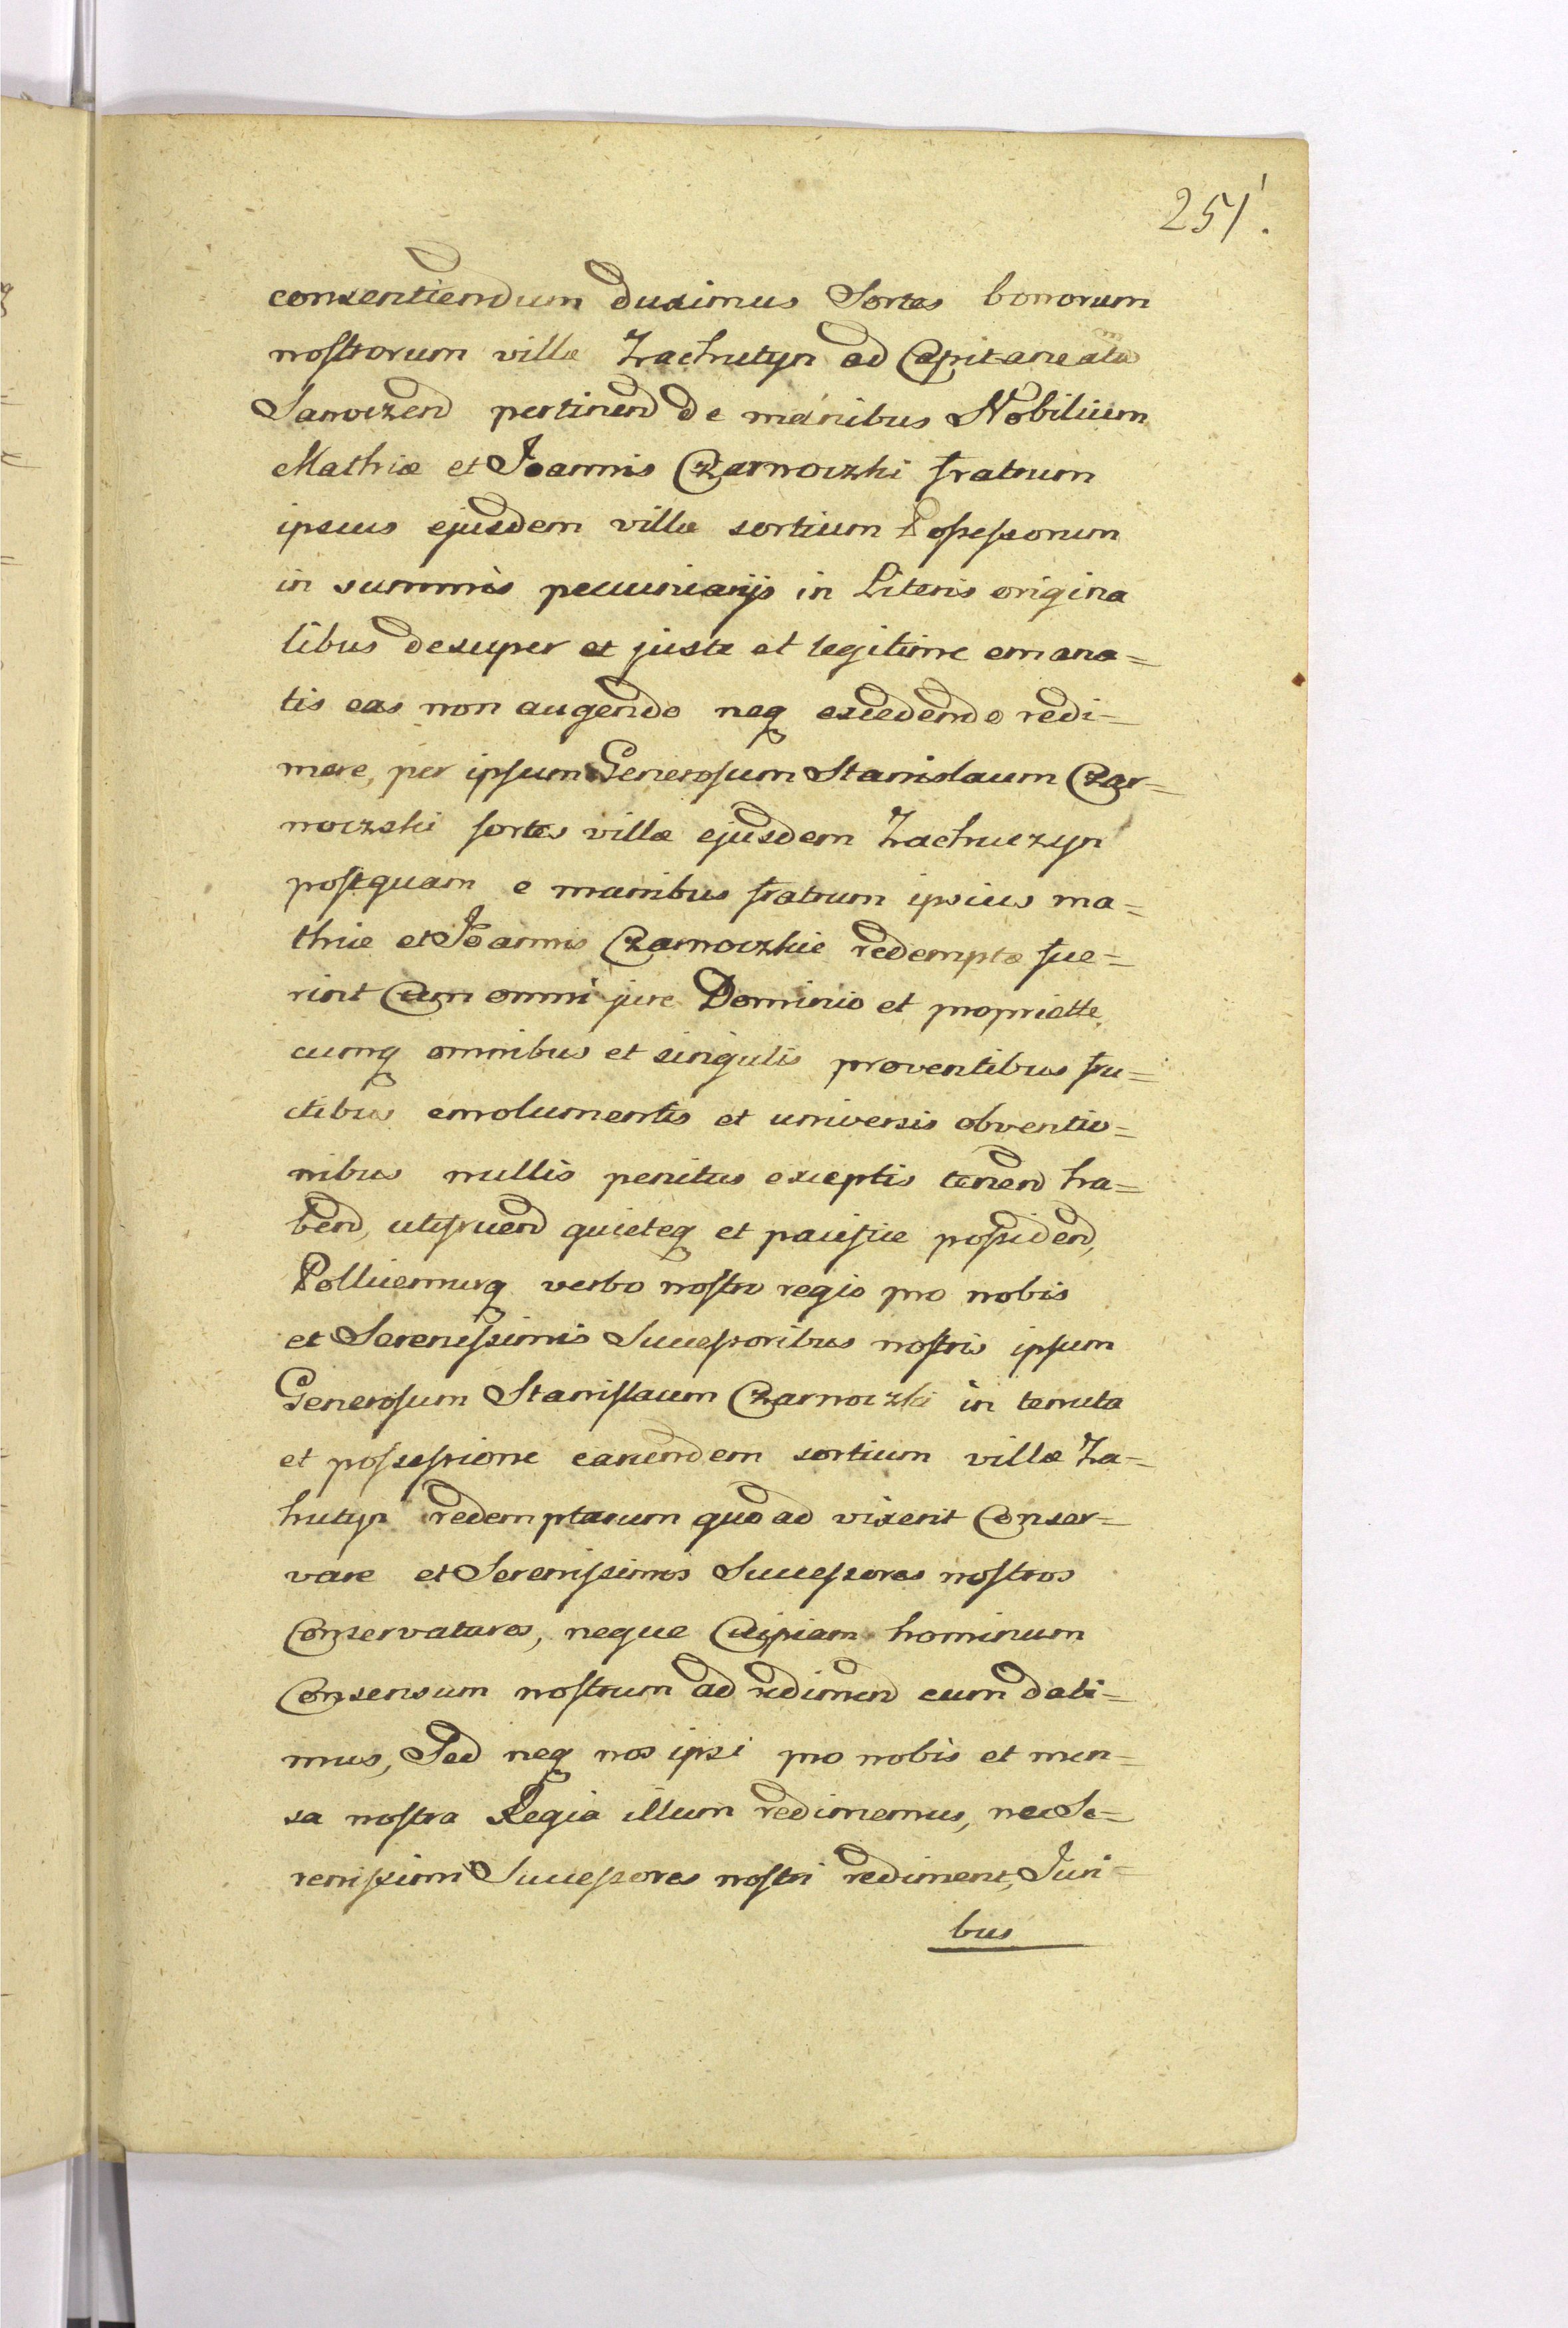 251.
consentiendum duximus Sortes bonorum
nostrorum villæ Zachutyn ad Capitaneatum
Sanoczen pertinen de manibus Nobilium
Mathiæ et Joannis Czarnoczki fratrum
ipsius ejusdem villæ sortium Possessorum
in summis pecuniarijs in Literis origina
libus desuper et juste et legitime emana=
tis eas non augendo neq excedendo redi=
mere, per ipsum Generosum Stanislaum Czar=
noczski sortes villæ ejusdem Zachuczyn
postquam e manibus fratrum ipsius ma=
thiæ et Joannis Czarnoczkie redemptæ fue=
rint Cum omni jure Dominio et propriette,
cumq omnibus et singulis proventibus fru=
ctibus emolumentis et universis obventio=
nibus nullis penitus exceptis tenend ha=
bend, utifruend quieteq et pacifice possidend,
Pollicemurq verbo nostro regio pro nobis
et Serenissimis Successoribus nostris ipsum
Generosum Stanislaum Czarnoczki in tenuta
et possessione earundem sortium villæ Za=
hutyn redemptarum quoad vixerit Conser=
vare et Serenissimos Successores nostros
Conservaturos, neque Cuipiam hominum
Consensum nostrum ad redimend eum dabi=
mus, Sed neq nos ipsi pro nobis et men=
sa nostra Regia illum redimemus, nec Se=
renissimi Successores nostri rediment, Juri=
bus